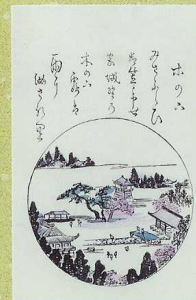 木の下
みさふらひ
御笠と申せ
宮城野の
木の下
露は
雨に
まされり